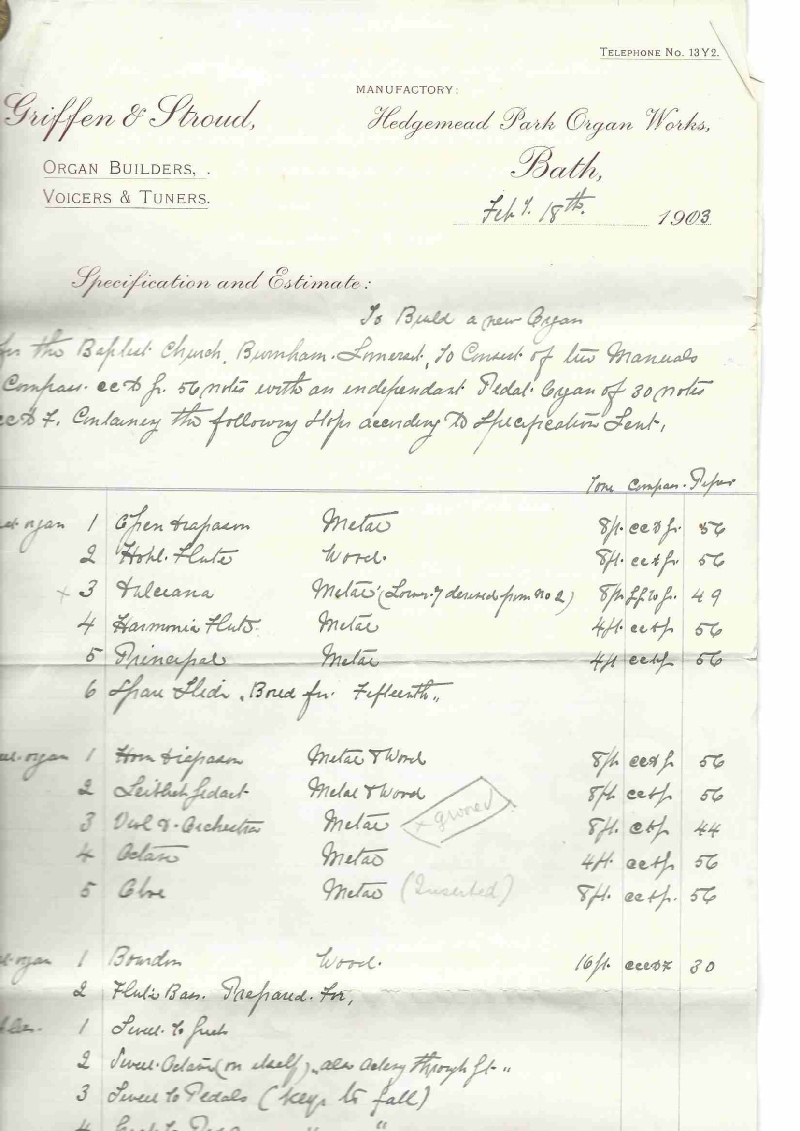 TELEPHONE NO. 13Y2.
MANUFACTORY:
Griffen & Stroud,
Hedgemead Park Organ Works,
ORGAN BUILDERS, .
Bath,
VOICERS & TUNERS.
18th. 1903
Specification and Estimate:
To Build a new Organ
for the Baptist Church, Burnham. Somerset, To Consist of two Manuals
Compass. cc to g. 56 notes with an independant Pedal Organ of 30 notes
ccc to F. Containing the following Stops according to Specification Sent,
Tone Compass. Pipes
organ 1 Open diapason Metal 8ft. cc to g. 56
2 Hohl. Flute Wood. 8ft. cc to g. 56
x 3 Dulciana Metal (Lower 7 derived from No 2) 8ft. 49
4 Harmonic Flute Metal 4ft. cc to g. 56
5 Principal Metal 4ft cc to g. 56
6 Spare Slide, Bored for Fifteenth "
organ 1 Horn Diapason Metal & Wood 8ft. cc to g. 56
2 Leiblich Gedact Metal & Wood 8ft. cc to g. 56
3 Viol d'Orchestra Metal x grooved 8ft. c to g. 44
4 Octave Metal 4ft. cc to g. 56
5 Oboe Metal (Inserted) 8ft. cc to g. 56
organ 1 Bourdon Wood. 16ft. ccc to F 30
2 Flute Bass. Prepared. For,
1 Swell. to Great
2 Swell. Octave (on itself) also acting through Gt. "
3 Swell to Pedals (keys to fall)
4 Great to Peds " "